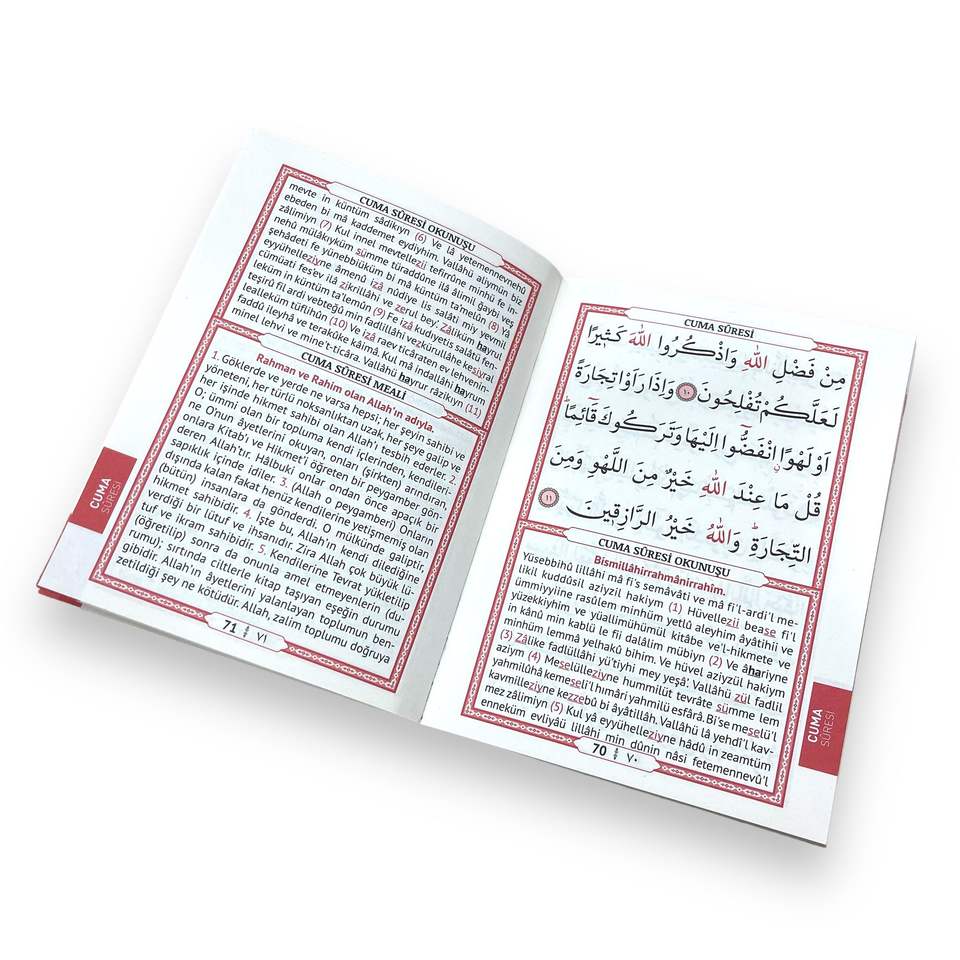 CUMA SÛRESİ
مِنْ فَضْلِ اللّٰهِ وَاذْكُرُوا اللّٰهَ كَثٖيرًا
لَعَلَّكُمْ تُفْلِحُونَ ﴿١٠﴾ وَاِذَا رَاَوْا تِجَارَةً
اَوْ لَهْوًا انْفَضُّٓوا اِلَيْهَا وَتَرَكُوكَ قَٓائِمًاۜ
قُلْ مَا عِنْدَ اللّٰهِ خَيْرٌ مِنَ اللَّهْوِ وَمِنَ
التِّجَارَةِۜ وَاللّٰهُ خَيْرُ الرَّازِقٖينَ ﴿١١﴾
CUMA SÛRESİ OKUNUŞU
Bismillâhirrahmânirrahîm.
Yüsebbihû lillâhi mâ fi's semâvâti ve mâ fi'l-ardi'l me-
likil kuddûsil azîyzil hakiym (1) Hüvellezii bease fi'l
ümmiyyiine rasûlem minhüm yetlû aleyhim âyâtihii ve
yüzekkiyhim ve yüallimühümül kitâbe ve'l-hikmete ve
in kânû min kablü le fii dalâlim mübiyn (2) Ve âhariyne
minhüm lemmâ yelhakû bihim. Ve hüvel aziyzül hakiym
(3) Zâlike fadlüllâhi yü'tiyhi mey yeşâ'. Vallâhü zül fadlil
aziym (4) Meselüllezîyne hummilüt tevrâte sümme lem
yahmilûhâ kemeseli'l hımâri yahmilü esfârâ. Bi'se meselü'l
kavmilleziyne kezzebû bi âyâtillâh. Vallâhü lâ yehdi'l kav-
mez zâlimiyn (5) Kul yâ eyyühelleziyne hâdû in zeamtüm
enneküm evliyâü lillâhi min dûnin nâsi fetemennevü'l
70 ٧٠
CUMA
SÛRESİ
CUMA SÛRESİ OKUNUŞU
mevte in küntüm sâdikıyn (6) Ve lâ yetemennevnehû
ebeden bi mâ kaddemet eydiyhim. Vallâhü aliymün biz
zâlimiyn (7) Kul innel mevtellezii tefirrûne minhü fe in-
nehû mülâkıyküm sümme türaddûne ilâ âlimil ğaybi veş
şehâdeti fe yünebbiüküm bi mâ küntüm ta'melûn (8) Yâ
eyyühelleziyne âmenû izâ nûdiye lis salâti miy yevmil
cümüati fes'ev ilâ zikrillâhi ve zerul bey'. Zâliküm hayrul
leküm in küntüm ta'lemûn (9) Fe izâ kudiyetis salâtü fen-
teşirû fil ardi vebteğû min fadlillâhi vezkürullâhe kesiyral
lealleküm tüflihûn (10) Ve izâ raev ticâraten ev lehvenin-
faddû ileyhâ ve terakûke kâimâ. Kul mâ indallâhi hayrum
minel lehvi ve mine't-ticâra. Vallâhü hayrur râzikıyn (11)
CUMA SÛRESİ MEALİ
Rahman ve Rahim olan Allah'ın adıyla.
1. Göklerde ve yerde ne varsa hepsi; her şeyin sahibi ve
yöneteni, her türlü noksanlıktan uzak, her şeye galip ve
her işinde hikmet sahibi olan Allah'ı tesbih ederler. 2.
O; ümmi olan bir topluma kendi içlerinden, kendileri-
ne Onun âyetlerini okuyan, onları (şirkten) arındıran,
onlara Kitab'ı ve Hikmet'i öğreten bir peygamber gön-
deren Allah'tır. Hâlbuki onlar ondan önce apaçık bir
sapıklık içinde idiler. 3. (Allah o peygamberi) Onların
dışında kalan fakat henüz kendilerine yetişmemiş olan
(bütün) insanlara da gönderdi. O mülkünde galiptir,
hikmet sahibidir. 4. İşte bu, Allah'ın kendi dilediğine
verdiği bir lütuf ve ihsanıdır. Zira Allah çok büyük lü-
tuf ve ikram sahibidir. 5. Kendilerine Tevrat yükletilip
(öğretilip) sonra da onunla amel etmeyenlerin (du-
rumu); sırtında ciltlerle kitap taşıyan eşeğin durumu
gibidir. Allah'ın âyetlerini yalanlayan toplumun ben-
zetildiği şey ne kötüdür. Allah, zalim toplumu doğruya
71 ٧١
CUMA
SÛRESİ